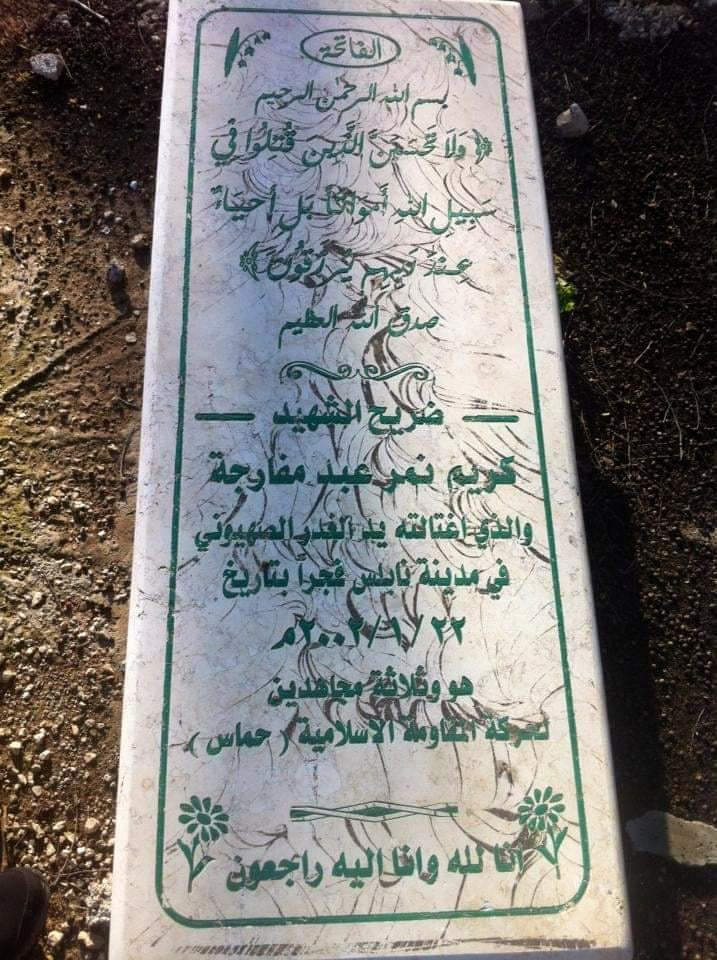 الفاتحة
بسم الله الرحمن الرحيم
﴿ وَلَا تَحْسَبَنَّ الَّذِينَ قُتِلُوا فِي
سَبِيلِ اللهِ أَمْوَاتًا بَلْ أَحْيَاءٌ
عِنْدَ رَبِّهِمْ يُرْزَقُونَ ﴾
صدق الله العظيم
ضريح الشهيد
كريم نمر عبد مفارجة
والذي اغتالته يد الغدر الصهيوني
في مدينة نابلس فجراً بتاريخ
٢٢ /١/ ٢٠٠٢م
هو وثلاثة مجاهدين
لحركة المقاومة الاسلامية ( حماس )
انا لله وانا اليه راجعون